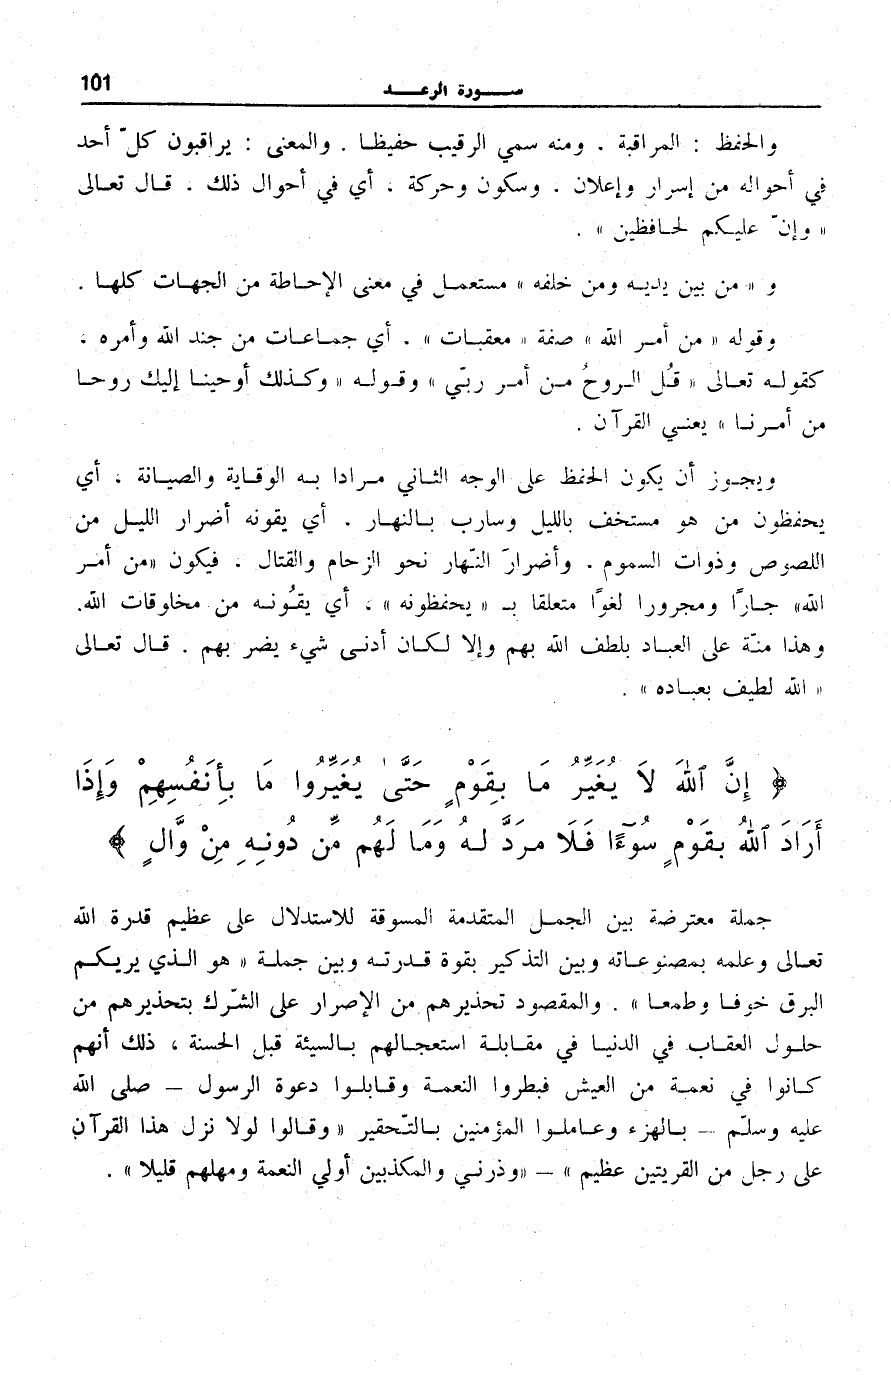 سورة الرعد 101
والحفظ : المراقبة . ومنه سمي الرقيب حفيظا . والمعنى : يراقبون كلّ أحد
في أحواله من إسرار وإعلان . وسكون وحركة ، أي في أحوال ذلك . قال تعالى
« وإنّ عليكم لحافظين » .
و « من بين يديه ومن خلفه » مستعمل في معنى الإحاطة من الجهات كلها .
وقوله « من أمر الله » صفة « معقبات » . أي جماعات من جند الله وأمره ،
كقوله تعالى « قُل الروحُ من أمر ربّي » وقوله « وكذلك أوحينا إليك روحا
من أمرنا » يعني القرآن .
ويجوز أن يكون الحفظ على الوجه الثاني مرادا به الوقاية والصيانة ، أي
يحفظون من هو مستخف بالليل وسارب بالنهار . أي يقونه أضرار الليل من
اللصوص وذوات السموم . وأضرارَ النّهار نحو الزحام والقتال ، فيكون «من أمر
الله» جارًا ومجرورا لغوًا متعلقا بـ « يحفظونه » ، أي يقُونه من مخلوقات الله.
وهذا منّة على العباد بلطف الله بهم وإلا لكان أدنى شيء يضر بهم . قال تعالى
« الله لطيف بعباده » .
﴿ إِنَّ ٱللَّهَ لَا يُغَيِّرُ مَا بِقَوْمٍ حَتَّىٰ يُغَيِّرُوا مَا بِأَنفُسِهِمْ وَإِذَا
أَرَادَ ٱللَّهُ بِقَوْمٍ سُوٓءًا فَلَا مَرَدَّ لَهُ وَمَا لَهُم مِّن دُونِهِ مِنْ وَّالٍ ﴾
جملة معترضة بين الجمل المتقدمة المسوقة للاستدلال على عظيم قدرة الله
تعالى وعلمه بمصنوعاته وبين التذكير بقوة قدرته وبين جملة « هو الذي يريكم
البرق خوفا وطمعا » . والمقصود تحذيرهم من الإصرار على الشّرك بتحذيرهم من
حلول العقاب في الدنيا في مقابلة استعجالهم بالسيئة قبل الحسنة ، ذلك أنهم
كانوا في نعمة من العيش فبطروا النعمة وقابلوا دعوة الرسول — صلى الله
عليه وسلّم — بالهزء وعاملوا المؤمنين بالتّحقير « وقالوا لولا نزل هذا القرآن
على رجل من القريتين عظيم » — «وذرني والمكذبين أولي النعمة ومهلهم قليلا » .